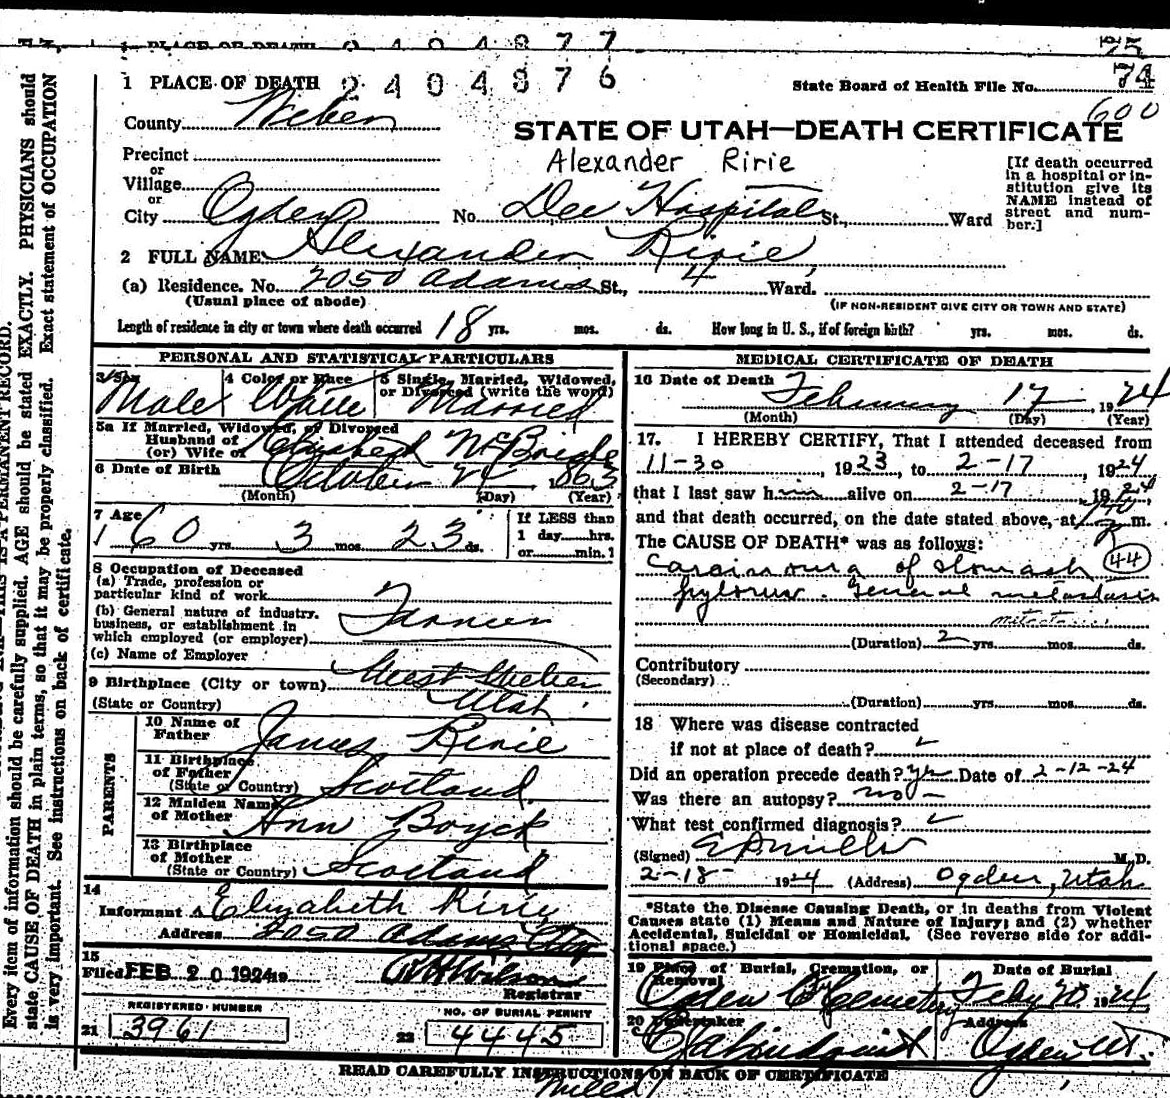 1 PLACE OF DEATH 2404877
75
1 PLACE OF DEATH 2404876
State Board of Health File No. 74
600
County Weber
STATE OF UTAH—DEATH CERTIFICATE
Alexander Ririe
Precinct
or
Village
or
City Ogden No. Dee Hospital St., Ward
[If death occurred
in a hospital or in-
stitution give its
NAME instead of
street and num-
ber.]
2 FULL NAME Alexander Ririe
(a) Residence. No. 2050 Adams St., 4 Ward.
(Usual place of abode)
(IF NON-RESIDENT GIVE CITY OR TOWN AND STATE)
Length of residence in city or town where death occurred 18 yrs. mos. ds. How long in U. S., if of foreign birth? yrs. mos. ds.
PERSONAL AND STATISTICAL PARTICULARS
3 Sex Male
4 Color or Race White
5 Single, Married, Widowed,
or Divorced (write the word)
Married
5a If Married, Widowed, or Divorced
Husband of
(or) Wife of Elizabeth McBride
6 Date of Birth October 24 1863
(Month) (Day) (Year)
7 Age 60 yrs. 3 mos. 23 ds.
If LESS than
1 day hrs.
or min.
8 Occupation of Deceased
(a) Trade, profession or
particular kind of work
(b) General nature of industry,
business, or establishment in
which employed (or employer)
Farmer
(c) Name of Employer
9 Birthplace (City or town) West Weber
(State or Country) Utah
PARENTS
10 Name of
Father James Ririe
11 Birthplace
of Father
(State or Country) Scotland
12 Maiden Name
of Mother Ann Boyck
13 Birthplace
of Mother
(State or Country) Scotland
14
Informant Elizabeth Ririe
Address 2050 Adams City
15
Filed FEB 20 1924 19
Wilson
Registrar
REGISTERED NUMBER
21 3961
NO. OF BURIAL PERMIT
22 4445
MEDICAL CERTIFICATE OF DEATH
16 Date of Death February 17 1924
(Month) (Day) (Year)
17. I HEREBY CERTIFY, That I attended deceased from
11-30, 1923, to 2-17 1924
that I last saw him alive on 2-17 1924
and that death occurred, on the date stated above, at 740 m.
The CAUSE OF DEATH* was as follows:
Carcinoma of stomach 44
pylorus. General metastasis
(Duration) 2 yrs. mos. ds.
Contributory
(Secondary)
(Duration) yrs. mos. ds.
18 Where was disease contracted
if not at place of death?
Did an operation precede death? yes Date of 2-12-24
Was there an autopsy? no -
What test confirmed diagnosis?
(Signed) M.D.
2-18- 1924 (Address) Ogden, Utah
*State the Disease Causing Death, or in deaths from Violent
Causes state (1) Means and Nature of Injury; and (2) whether
Accidental, Suicidal or Homicidal. (See reverse side for addi-
tional space.)
19 Place of Burial, Cremation, or
Removal
Ogden City Cemetery
Date of Burial
Feby 20 1924
20 Undertaker
Address
Ogden Ut.
READ CAREFULLY INSTRUCTIONS ON BACK OF CERTIFICATE
THIS IS A PERMANENT RECORD.
Every item of information should be carefully supplied. AGE should be stated EXACTLY. PHYSICIANS should
state CAUSE OF DEATH in plain terms, so that it may be properly classified. Exact statement of OCCUPATION
is very important. See instructions on back of certificate.